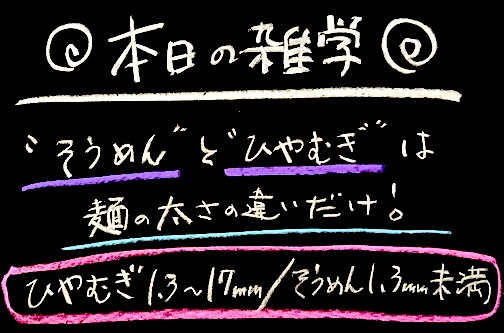 本日の雑学
"そうめん"と"ひやむぎ"は
麺の太さの違いだけ!
ひやむぎ1.3~1.7mm/そうめん1.3mm未満